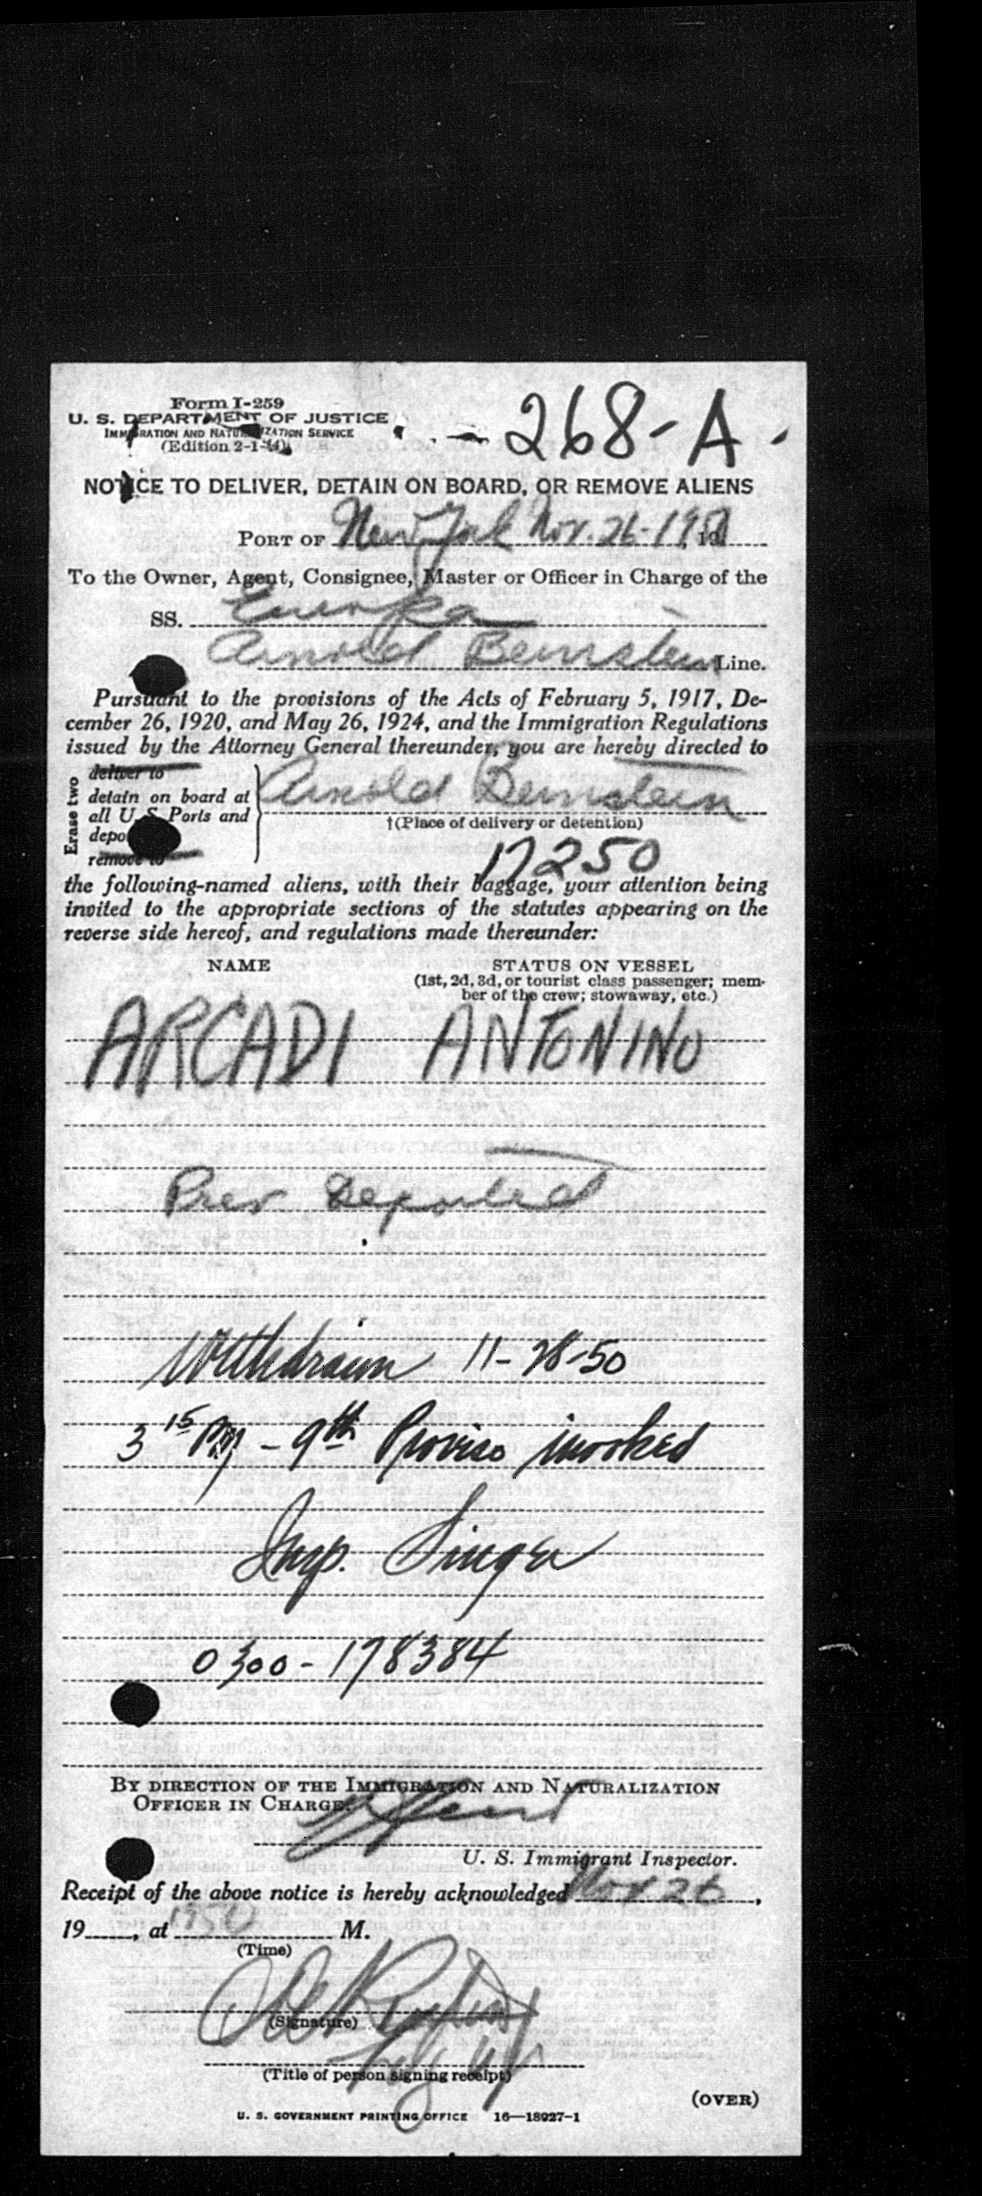 Form I-259
U. S. DEPARTMENT OF JUSTICE
IMMIGRATION AND NATURALIZATION SERVICE
(Edition 2-1-44)
268-A
NOTICE TO DELIVER, DETAIN ON BOARD, OR REMOVE ALIENS
PORT OF New York Nov. 26-1950, 19
To the Owner, Agent, Consignee, Master or Officer in Charge of the
SS. Europa
Arnold Bernstein Line.
Pursuant to the provisions of the Acts of February 5, 1917, De-
cember 26, 1920, and May 26, 1924, and the Immigration Regulations
issued by the Attorney General thereunder, you are hereby directed to
Erase two
deliver to
detain on board at
all U. S. Ports and
deport
remove to
Arnold Bernstein
†(Place of delivery or detention)
17250
the following-named aliens, with their baggage, your attention being
invited to the appropriate sections of the statutes appearing on the
reverse side hereof, and regulations made thereunder:
NAME STATUS ON VESSEL
(1st, 2d, 3d, or tourist class passenger; mem-
ber of the crew; stowaway, etc.)
ARCADI ANTONINO
Prev Deported
Withdrawn 11-28-50
3 15 PM - 9th Proviso invoked
Insp. Singer
0300-178384
BY DIRECTION OF THE IMMIGRATION AND NATURALIZATION
OFFICER IN CHARGE.
U. S. Immigrant Inspector.
Receipt of the above notice is hereby acknowledged Nov 26,
19, at 1950 M.
(Time)
(Signature)
(Title of person signing receipt)
(OVER)
U. S. GOVERNMENT PRINTING OFFICE 16—18927-1